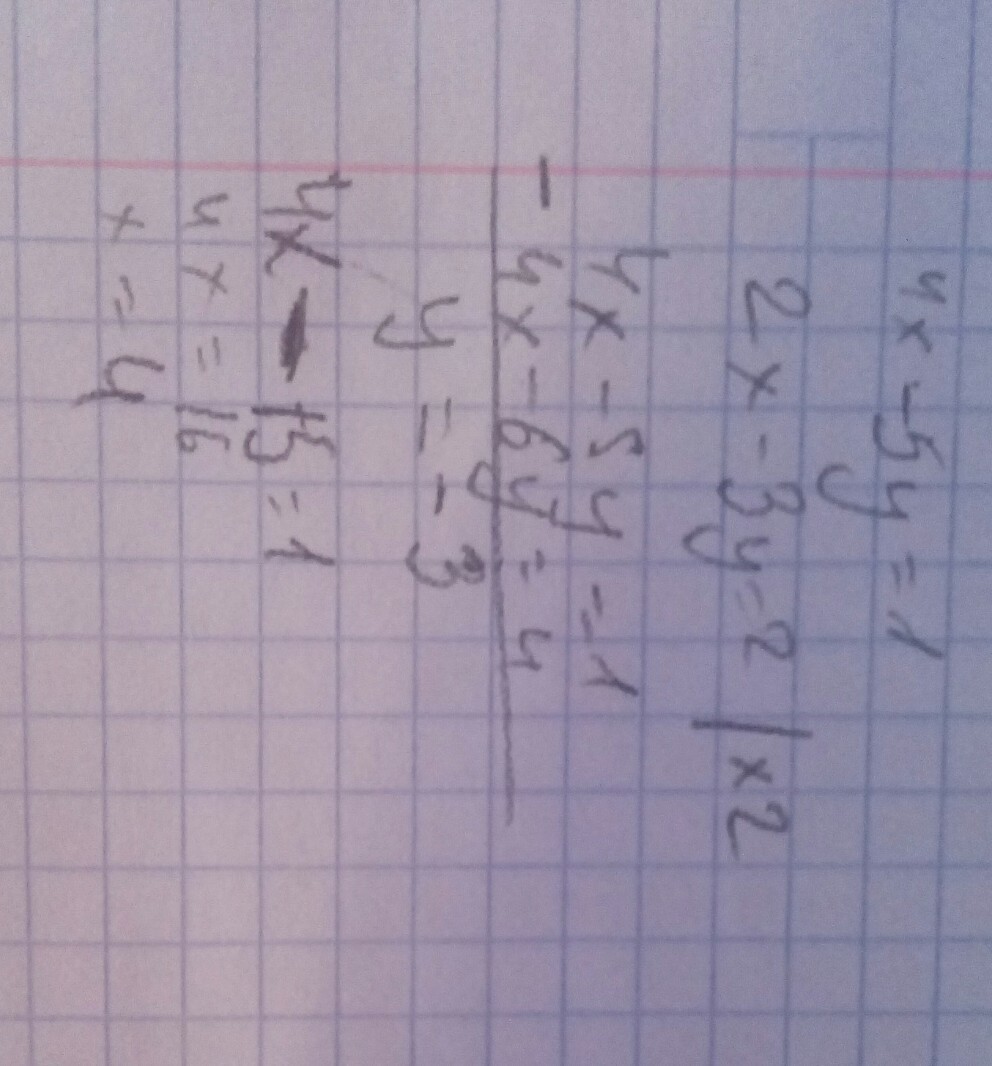 4x - 5y = 1
2x - 3y = 2 | x2
4x - 5y = 1
- 4x - 6y = 4
y = - 3
4x - 15 = 1
4x = 16
x = 4